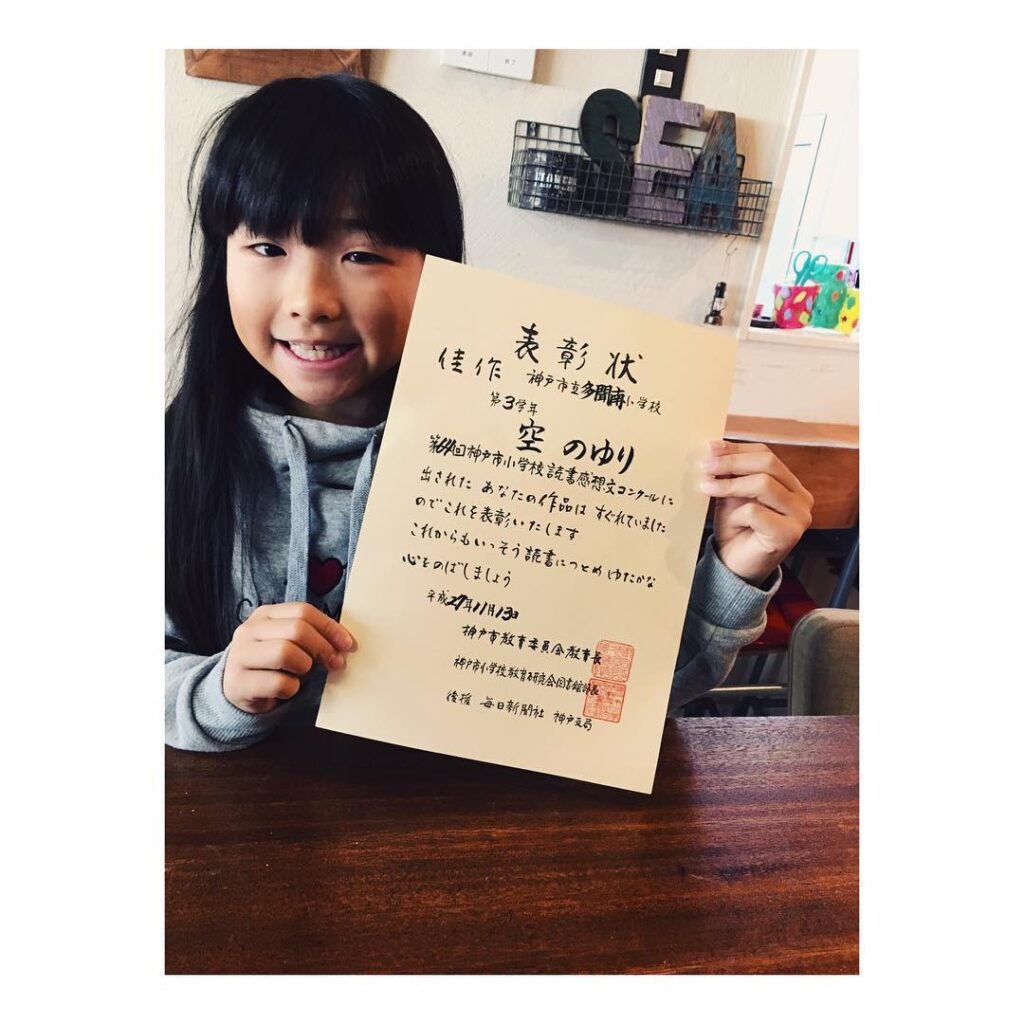 終了
SEA
表彰状
佳作 神戸市立多聞南小学校
第3学年
空 のゆり
第64回神戸市小学校読書感想文コンクールに
出された あなたの作品は すぐれていました
のでこれを表彰いたします
これからもいっそう読書につとめ ゆたかな
心をのばしましょう
平成27年11月13日
神戸市教育委員会教育長
神戸市小学校教育研究会図書館部長
後援 毎日新聞社 神戸支局